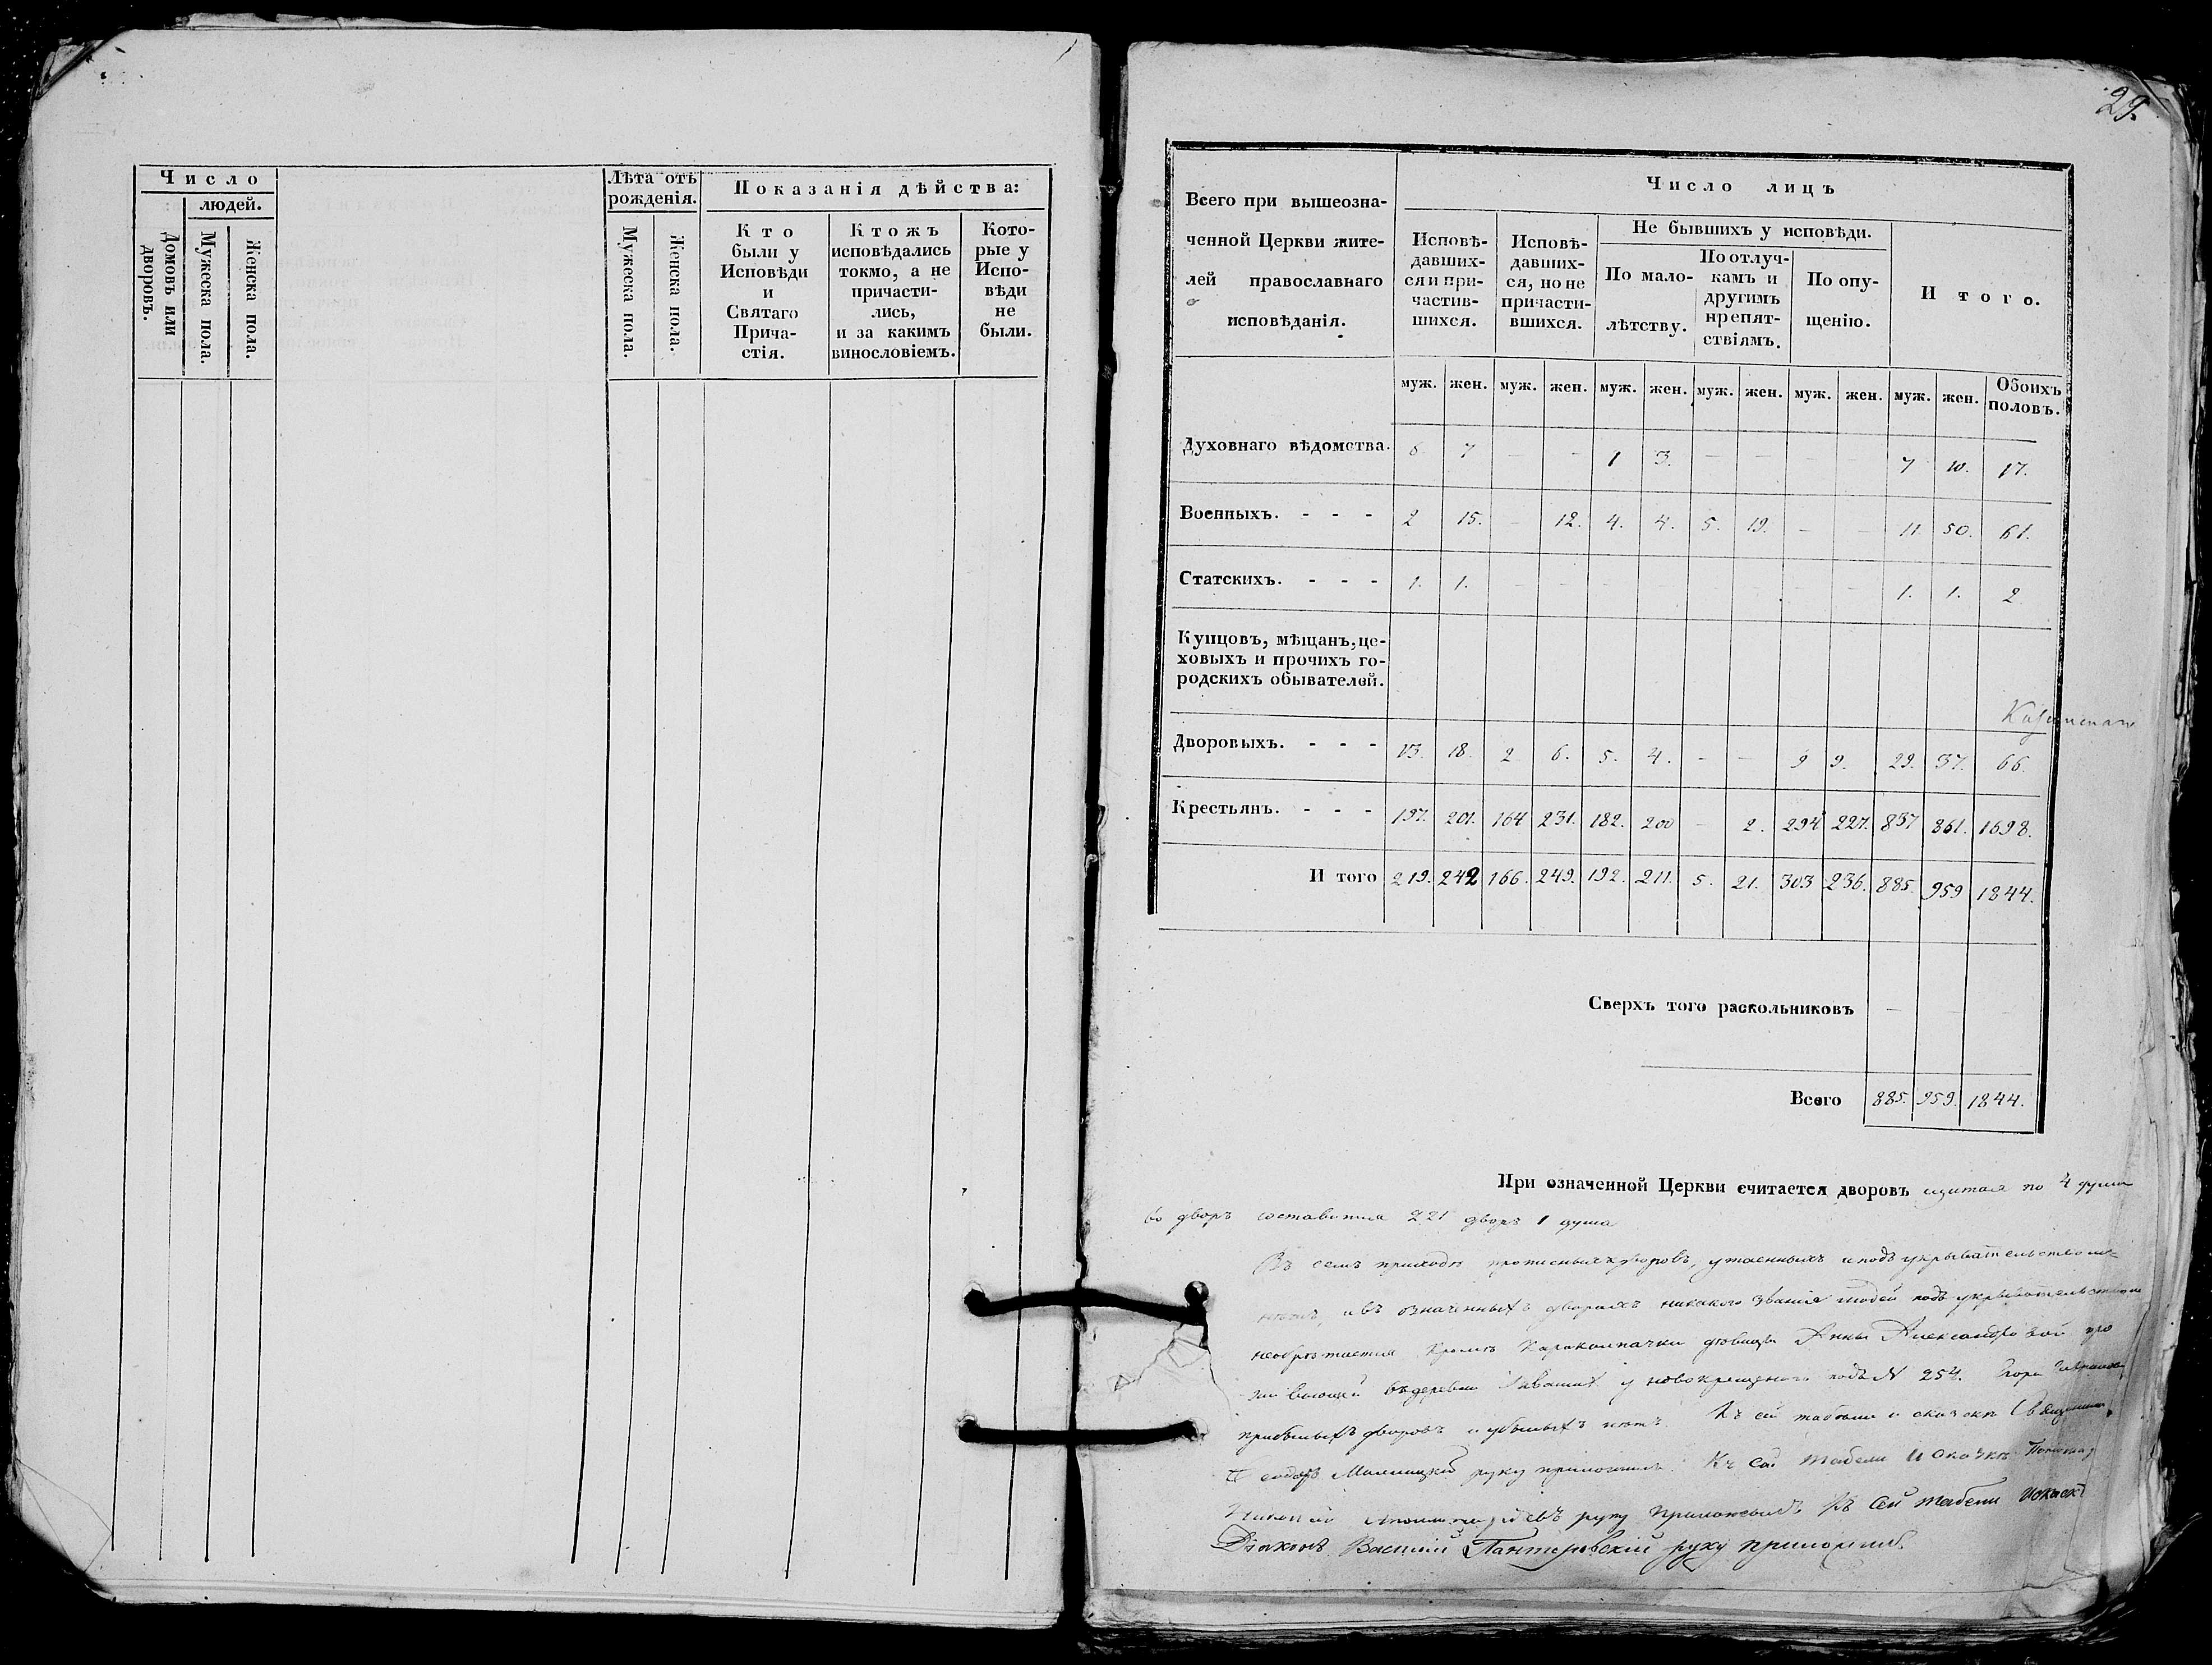 Число
людей.
Домовъ или дворовъ.
Мужеска пола.
Женска пола.
Лѣта отъ рожденія.
Мужеска пола.
Женска пола.
Показанія дѣйства:
Кто были у Исповѣди и Святаго Прича-стія.
Ктожъ исповѣдались токмо, а не причасти-лись, и за какимъ винословіемъ.
Кото-рые у Испо-вѣди не были.
29.
Всего при вышеозна-
ченной Церкви жите-
лей православнаго
исповѣданія.
Число лицъ
Исповѣ-давших-ся и при-частив-шихся.
Исповѣ-давших-ся, но не причасти-вшихся.
Не бывшихъ у исповѣди.
По мало-лѣтству.
По отлуч-камъ и другимъ препят-ствіямъ.
По опу-щенію.
Итого.
муж. жен. муж. жен. муж. жен. муж. жен. муж. жен. муж. жен. Обоихъ половъ.
Духовнаго вѣдомства. 6. 7 — - 1 3. — — — — 7 10. 17.
Военныхъ. - - - 2 15. — 12. 4. 4. 5. 19. — — 11. 50. 61.
Статскихъ. - - - 1. 1. — — — — — — — — 1. 1. 2
Купцовъ, мѣщанъ, це-
ховыхъ и прочихъ го-
родскихъ обывателей.
Дворовыхъ. - - - 13. 18. 2 6. 5. 4. - — 9 9. 29. 37. 66.
Крестьянъ. - - - 197. 201. 164 231. 182. 200 — 2. 294 227. 837 861. 1698.
Итого 219. 242 166. 249. 192. 211. 5. 21. 303 236. 885. 959 1844.
Сверхъ того раскольниковъ — — —
Всего 885. 959. 1844.
При означенной Церкви считается дворовъ щитая по 4 души
во дворъ составится 221 дворъ 1 душа
Въ семъ приходѣ прописныхъ дворовъ, утаенныхъ и подъ укрывательствомъ
нѣтъ, и въ означенныхъ дворахъ никакого званія людей подъ укрывательствомъ
необрѣтается Кромѣ Каракалпачки дѣвицы Анны Александровой про
живающей въ деревни у новокрещенаго подъ N 254.
прибылыхъ дворовъ и убылыхъ нѣтъ. Къ сей табели и сказкѣ Священникъ
руку приложилъ Къ сей табели и сказкѣ
руку приложилъ Къ сей табели и сказкѣ
Діаконъ Василий Пантеровскій руку приложилъ.